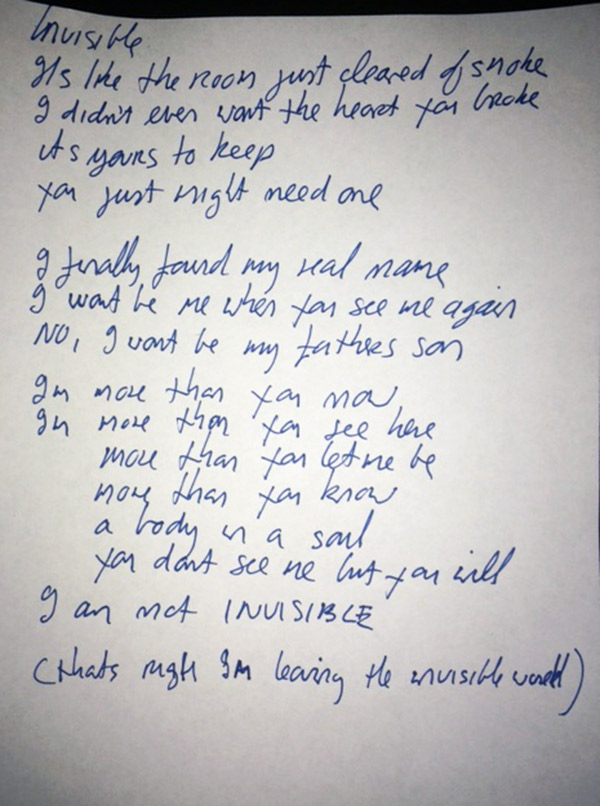 Invisible
Its like the room just cleared of smoke
I didnt even want the heart you broke
its yours to keep
you just might need one
I finally found my real name
I wont be me when you see me again
NO, I wont be my fathers son
Im more than you now
Im more than you see here
more than you let me be
more than you know
a body in a soul
you dont see me but you will
I am not INVISIBLE
(thats right Im leaving the invisible world)